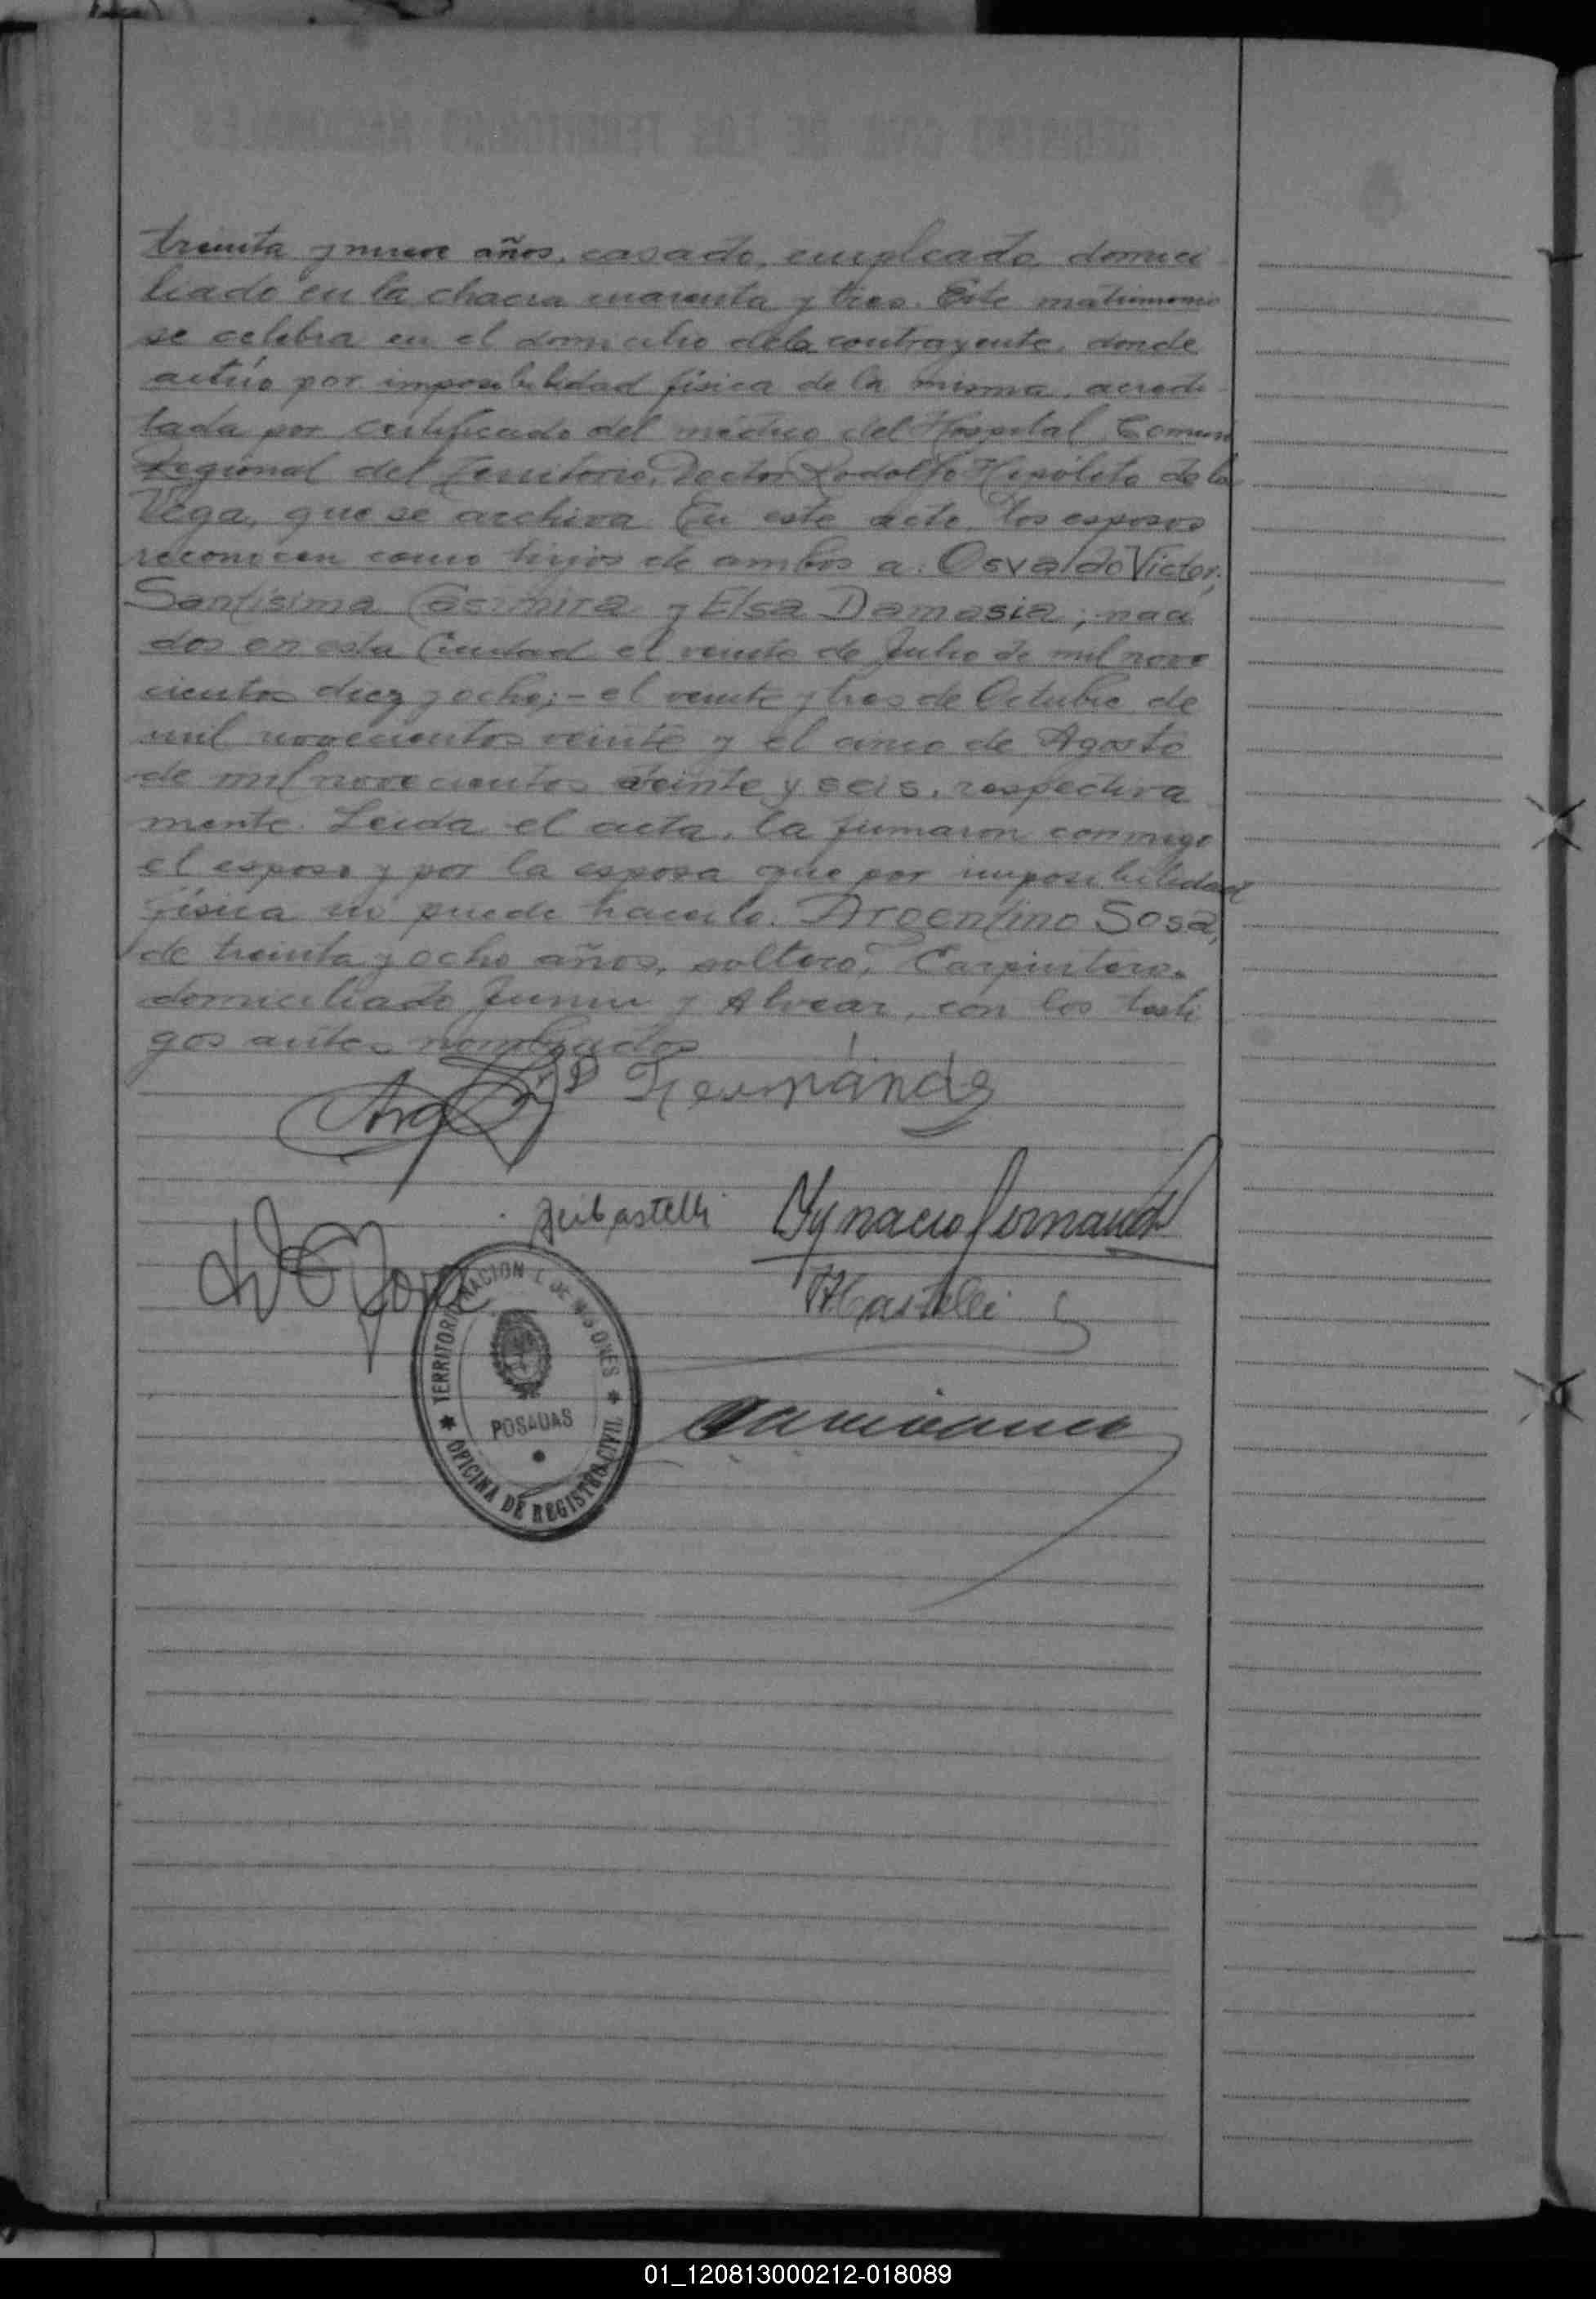 treinta y nueve años, casado, empleado, domici
liado en la chacra cuarenta y tres. Este matrimonio
se celebra en el domicilio de la contrayente, donde
actúo por imposibilidad física de la misma, acredi
tada por certificado del médico del Hospital Común
Regional del Territorio, Doctor Rodolfo Hipólito de la
Vega, que se archiva. En este acto, los esposos
reconocen como hijos de ambos a: Osvaldo Victor;
Santísima Casimira y Elsa Damasia; naci
dos en esta Ciudad el veinte de Julio de mil nove
cientos diez y ocho; - el veinte y tres de Octubre de
mil novecientos veinte y el cinco de Agosto
de mil novecientos veinte y seis, respectiva
mente. Leida el acta, la firmaron conmigo
el esposo y por la esposa que por imposibilidad
física no puede hacerlo. Argentino Sosa,
de treinta y ocho años, soltero, Carpintero,
domiciliado Junin y Alvear, con los testi
gos antes nombrados
Hernández
Castelli
Ygnacio Fernandez
Castelli
TERRITORIO NACIONAL DE MISIONES
POSADAS
OFICINA DE REGISTRO CIVIL
01_120813000212-018089